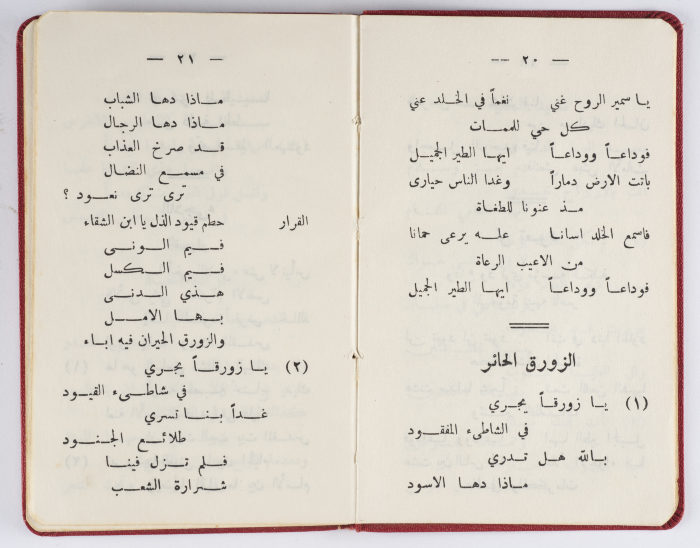 — ٢٠ —
يا سمير الروح غني نغماً في الخلد عني
كل حي للممات
فوداعاً ووداعاً ايها الطير الجميل
باتت الارض دماراً وغدا الناس حيارى
مذ عنونا للطغاة
فاسمع الخلد اسانا عله يرعى حمانا
من الاعيب الرعاة
فوداعاً ووداعاً ايها الطير الجميل
الزورق الحائر
(١) يا زورقاً يجري
في الشاطىء المفقود
بالله هل تدري
ماذا دها الاسود
— ٢١ —
ماذا دها الشباب
ماذا دها الرجال
قد صرخ العذاب
في مسمع النضال
ترى ترى نعود ؟
القرار حطم قيود الذل يا ابن الشقاء
فيم الونى
فيم الكسل
هذي الدنى
بها الامل
والزورق الحيران فيه اباء
(٢) يا زورقاً يجري
في شاطىء القيود
غداً بنا تسري
طلائع الجنود
فلم تزل فينا
شرارة الشعب